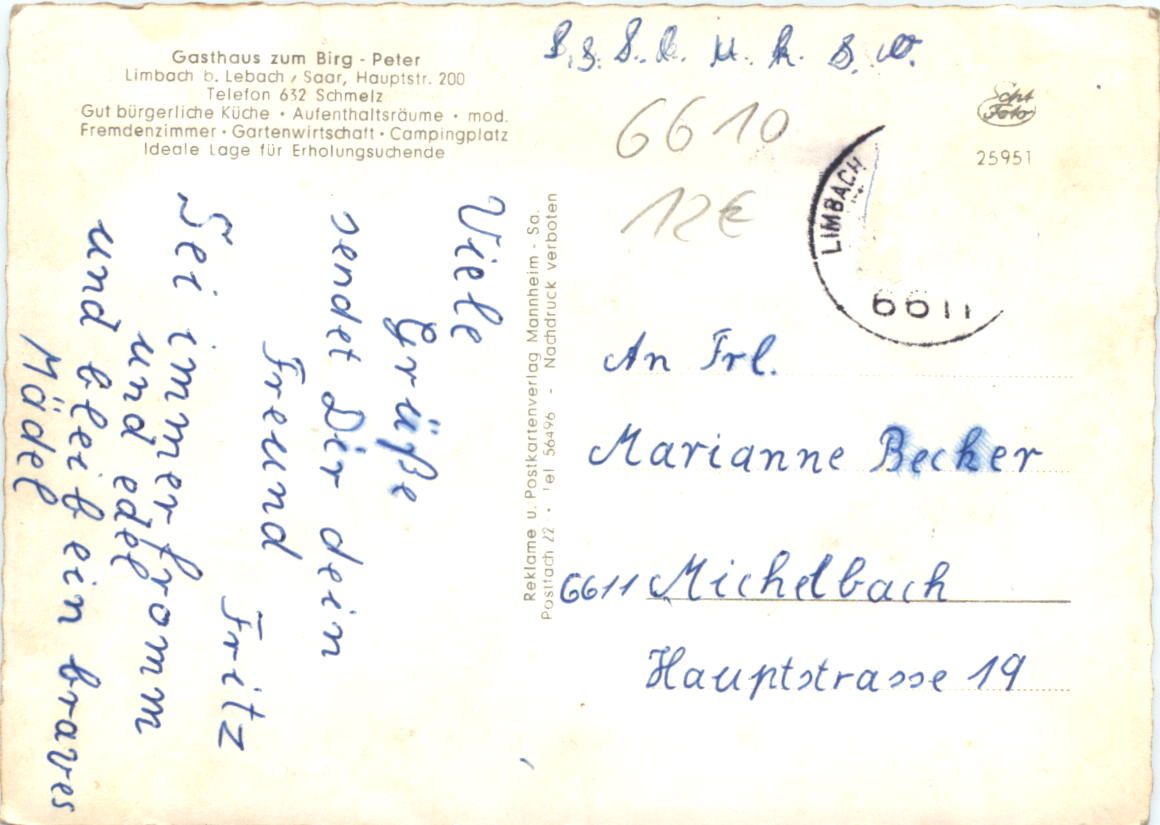 Gasthaus zum Birg - Peter
Limbach b. Lebach / Saar, Hauptstr. 200
Telefon 632 Schmelz
Gut bürgerliche Küche • Aufenthaltsräume • mod.
Fremdenzimmer • Gartenwirtschaft • Campingplatz
Ideale Lage für Erholungsuchende
Viele
Grüße
sendet Dir dein
Freund
Fritz
Sei immer fromm
und edel
und bleib ein braves
Mädel
Reklame u. Postkartenverlag Mannheim - Sa.
Postfach 22 • Tel 56496 - Nachdruck verboten
6610
12€
echt
Foto
25951
LIMBACH
6611
An Frl.
Marianne Becker
6611 Michelbach
Hauptstrasse 19